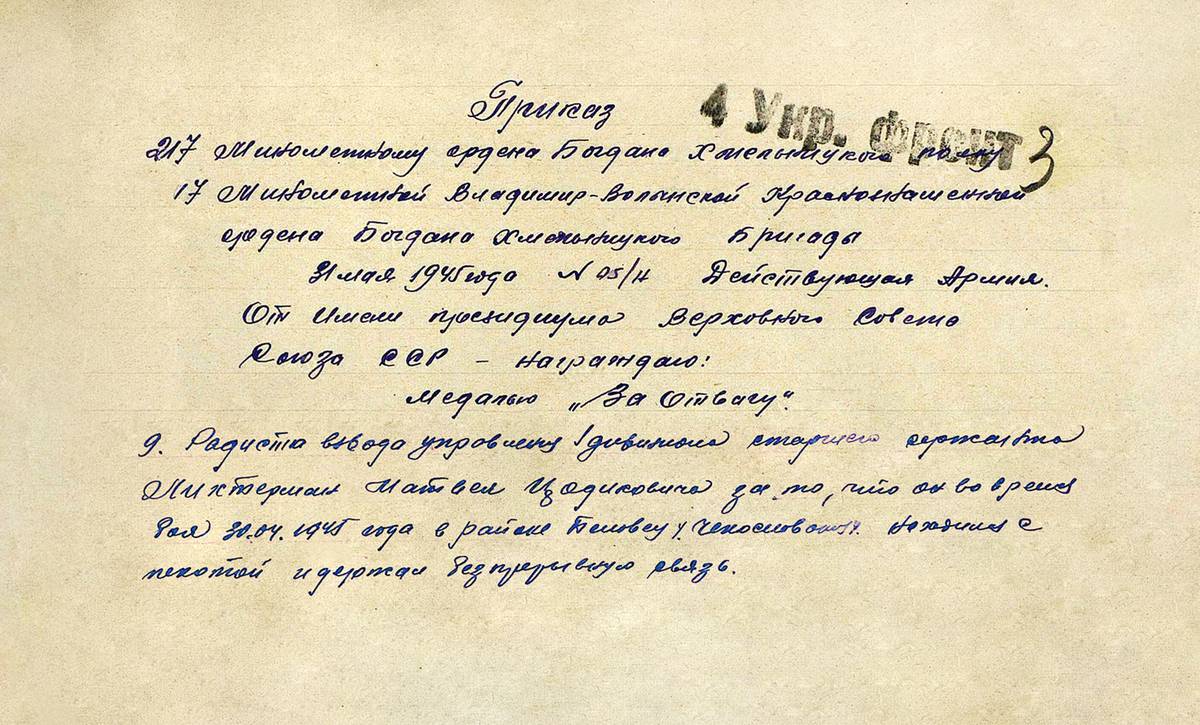 Приказ
4 Укр. фронт 3
217 Минометному ордена Богдана Хмельницкого полку
17 Минометной Владимир-Волынской Краснознаменной
ордена Богдана Хмельницкого Бригады
31 мая 1945 года N 05/Н Действующая Армия.
От имени президиума Верховного Совета
Союза ССР - награждаю:
Медалью „За Отвагу".
9. Радиста взвода управления 1 дивизиона старшего сержанта
Лихтерман Матвея Цодиковича за то, что он во время
боя 30.04.1945 года в районе находился с
пехотой и держал безпрерывную связь.